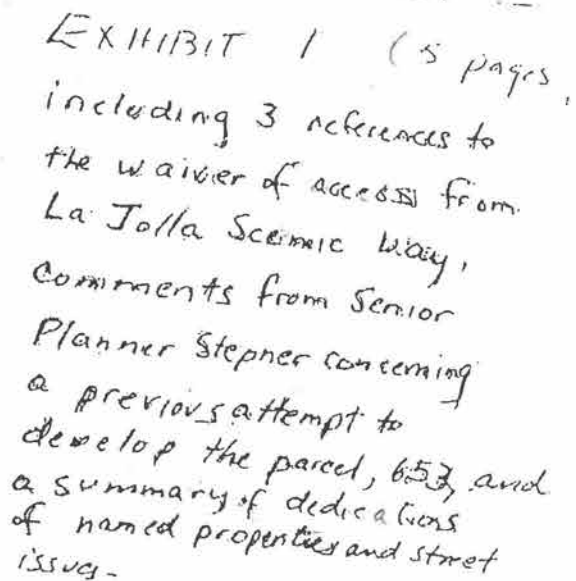 EXHIBIT 1 (5 pages,
including 3 references to
the waiver of access from
La Jolla Scenic Way,
comments from Senior
Planner Stepner concerning
a previous attempt to
develop the parcel, 653, and
a summary of dedications
of named properties and street
issues.